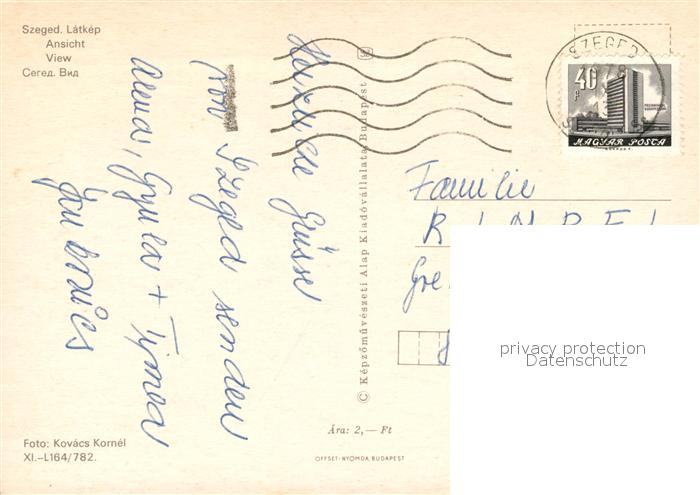 Szeged. Látkép
Ansicht
View
Сегед. Вид
Herzliche Grüsse
von Szeged senden
Anna, Gyula + Tímea
© Képzőművészeti Alap Kiadóvállalata, Budapest
SZEGED
40 f
MAGYAR POSTA
Familie
Gre
privacy protection
Datenschutz
Ára: 2,— Ft
Foto: Kovács Kornél
XI.–L164/782.
OFFSET-NYOMDA, BUDAPEST